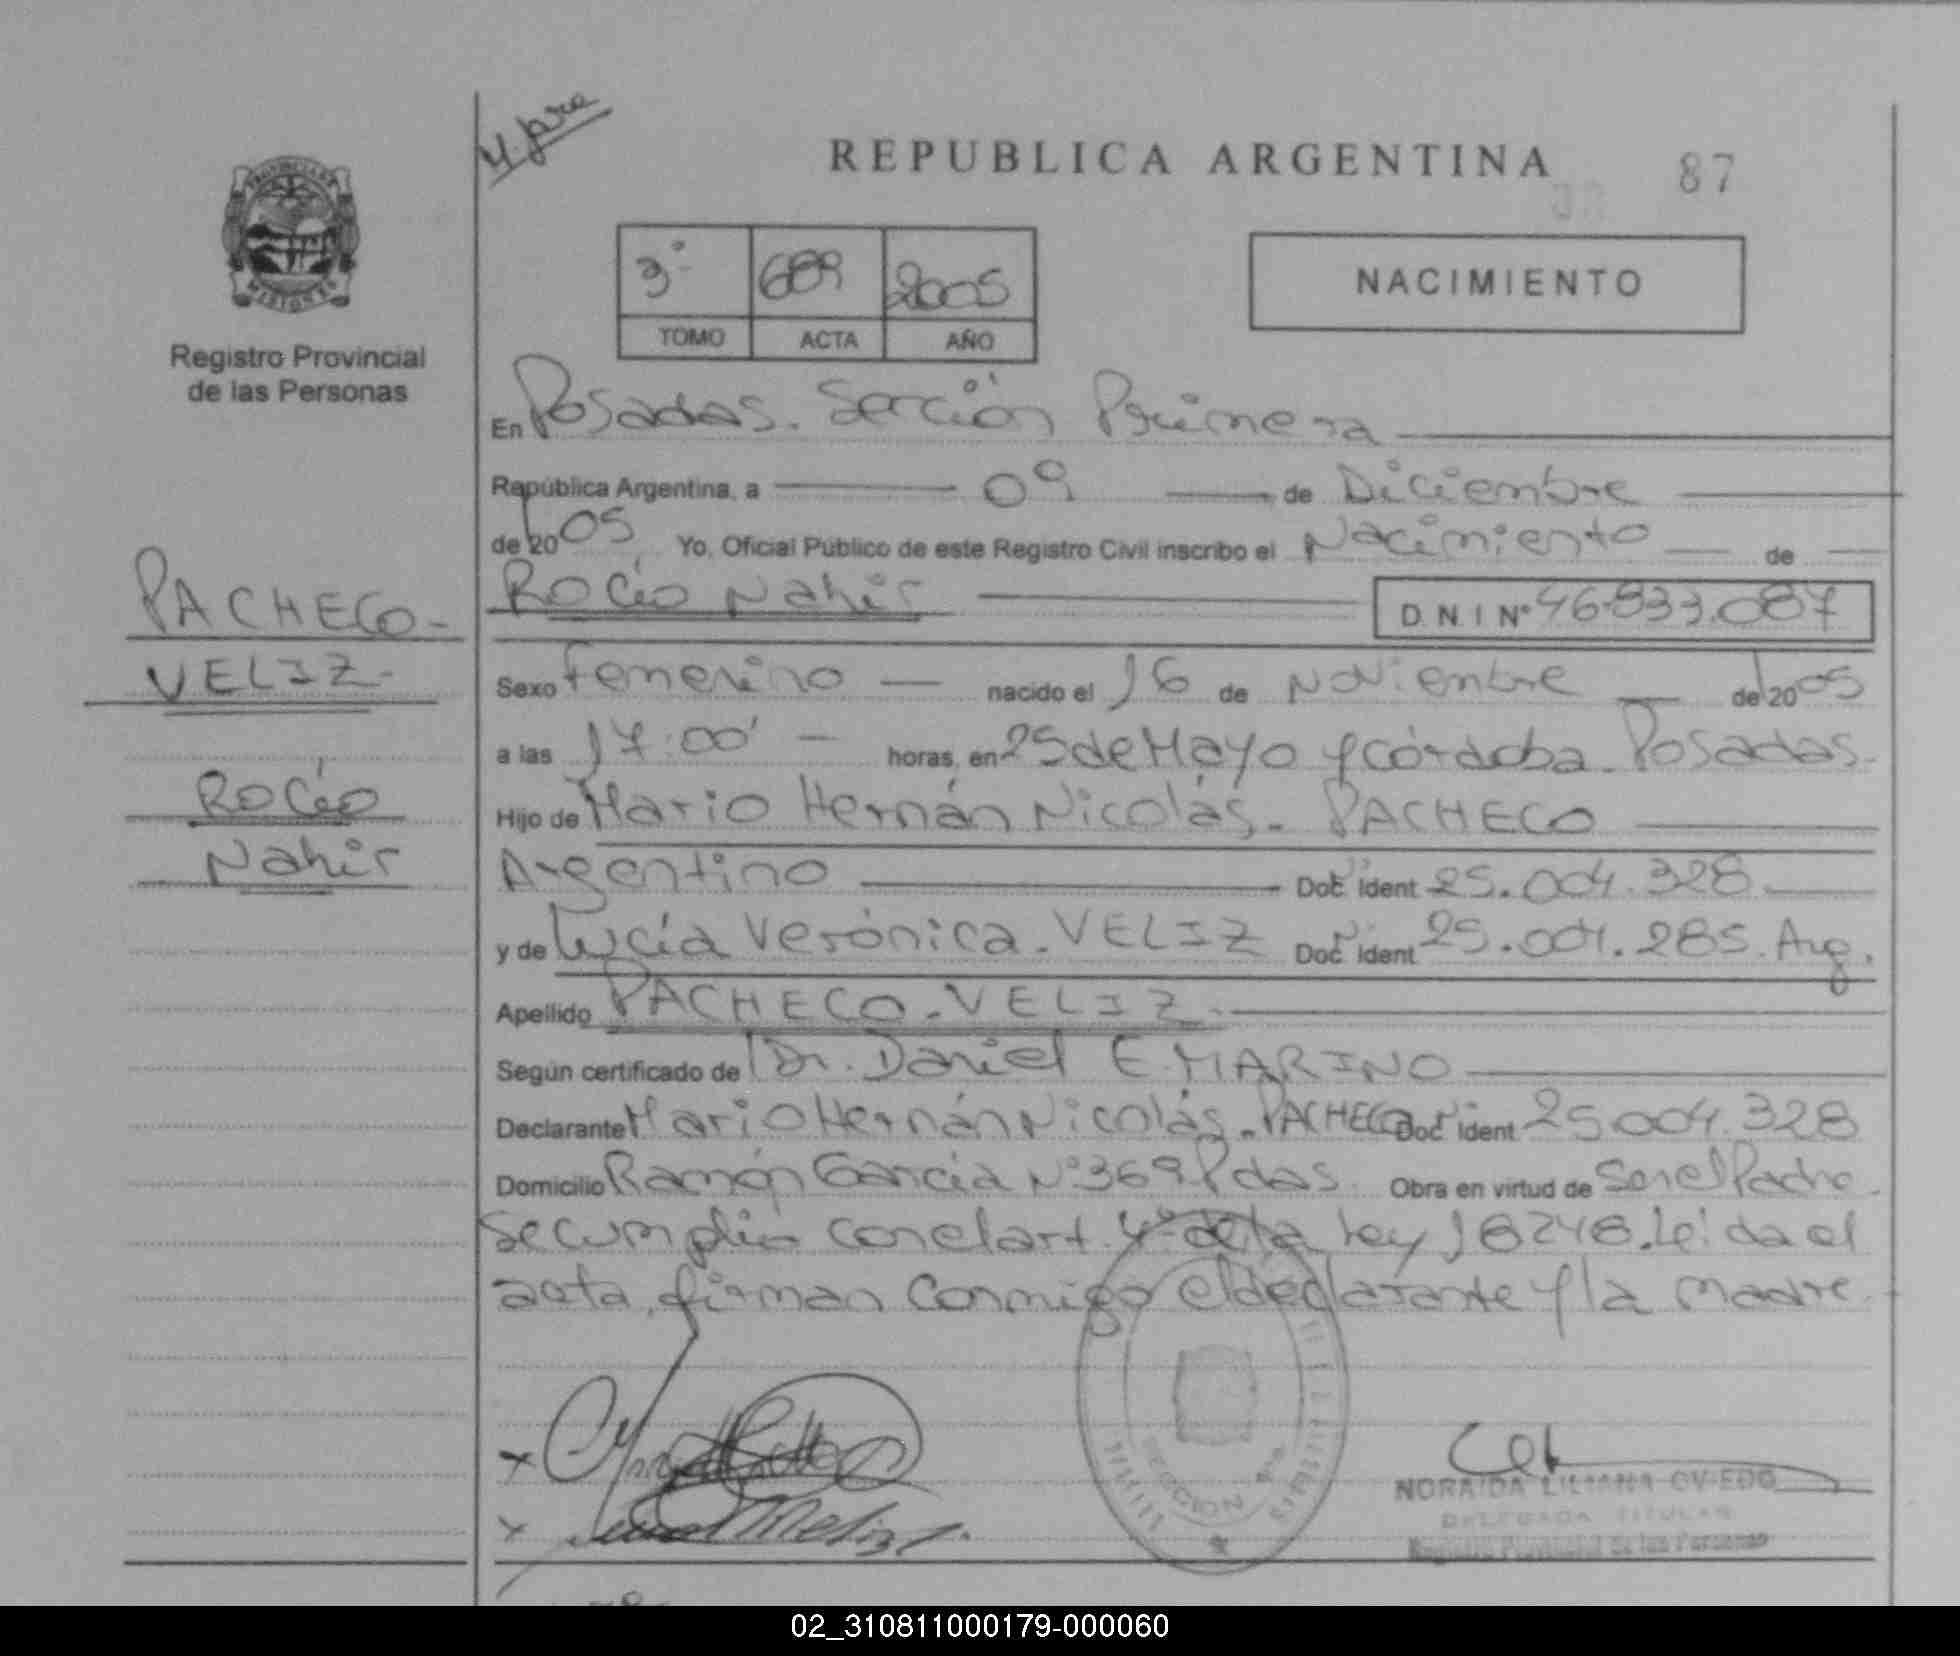 4. pre
REPUBLICA ARGENTINA 87
PROVINCIA DE
MISIONES
Registro Provincial
de las Personas
3º 689 2005
TOMO ACTA AÑO
NACIMIENTO
En Posadas. Sección Primera
República Argentina, a 09 de Diciembre
de 2005 Yo, Oficial Público de este Registro Civil inscribo el Nacimiento de
Rocío Nahir D.N.I Nº 46.833.087
PACHECO-
VELIZ-
Rocío
Nahir
Sexo Femenino nacido el 16 de Noviembre de 2005
a las 17:00' horas, en 25 de Mayo y Córdoba. Posadas.
Hijo de Mario Hernán Nicolás. PACHECO
Argentino Doc. Ident 25.004.328
y de Lucía Verónica. VELIZ Doc. Ident 25.004.285. Arg.
Apellido PACHECO-VELIZ.
Según certificado de Dr. Daniel E. MARINO
Declarante Mario Hernán Nicolás. PACHECO Doc. Ident 25004.328
Domicilio Ramón García Nº 369 Pdas. Obra en virtud de Ser el Padre.
Se cumplió con el art. 4º de la Ley 18248. Leída el
acta, firman conmigo el declarante y la madre.
x
x Veliz
SECCION 1ra
NORAIDA LILIANA OVIEDO
DELEGADA TITULAR
Registro Provincial de las Personas
02_310811000179-000060